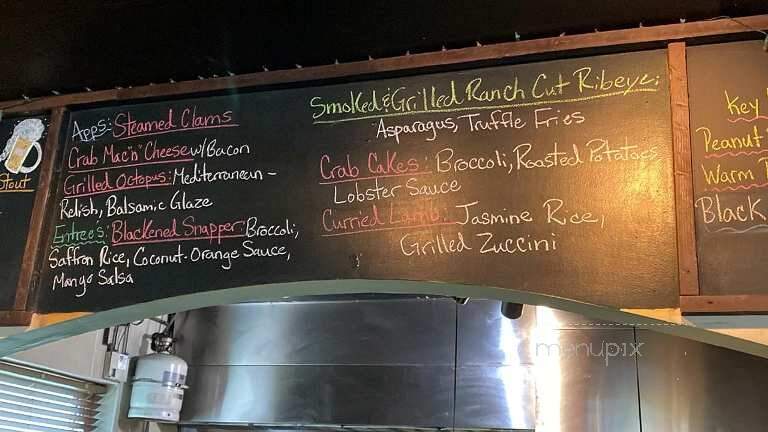 Stout
Apps: Steamed Clams
Crab Mac "n" Cheese w/Bacon
Grilled Octopus: Mediterranean -
Relish, Balsamic Glaze
Entrees: Blackened Snapper: Broccoli,
Saffron Rice, Coconut-Orange Sauce,
Mango Salsa
Smoked & Grilled Ranch Cut Ribeye:
Asparagus, Truffle Fries
Crab Cakes: Broccoli, Roasted Potatoes
Lobster Sauce
Curried Lamb: Jasmine Rice,
Grilled Zuccini
Key
Peanut
Warm
Black
menupix